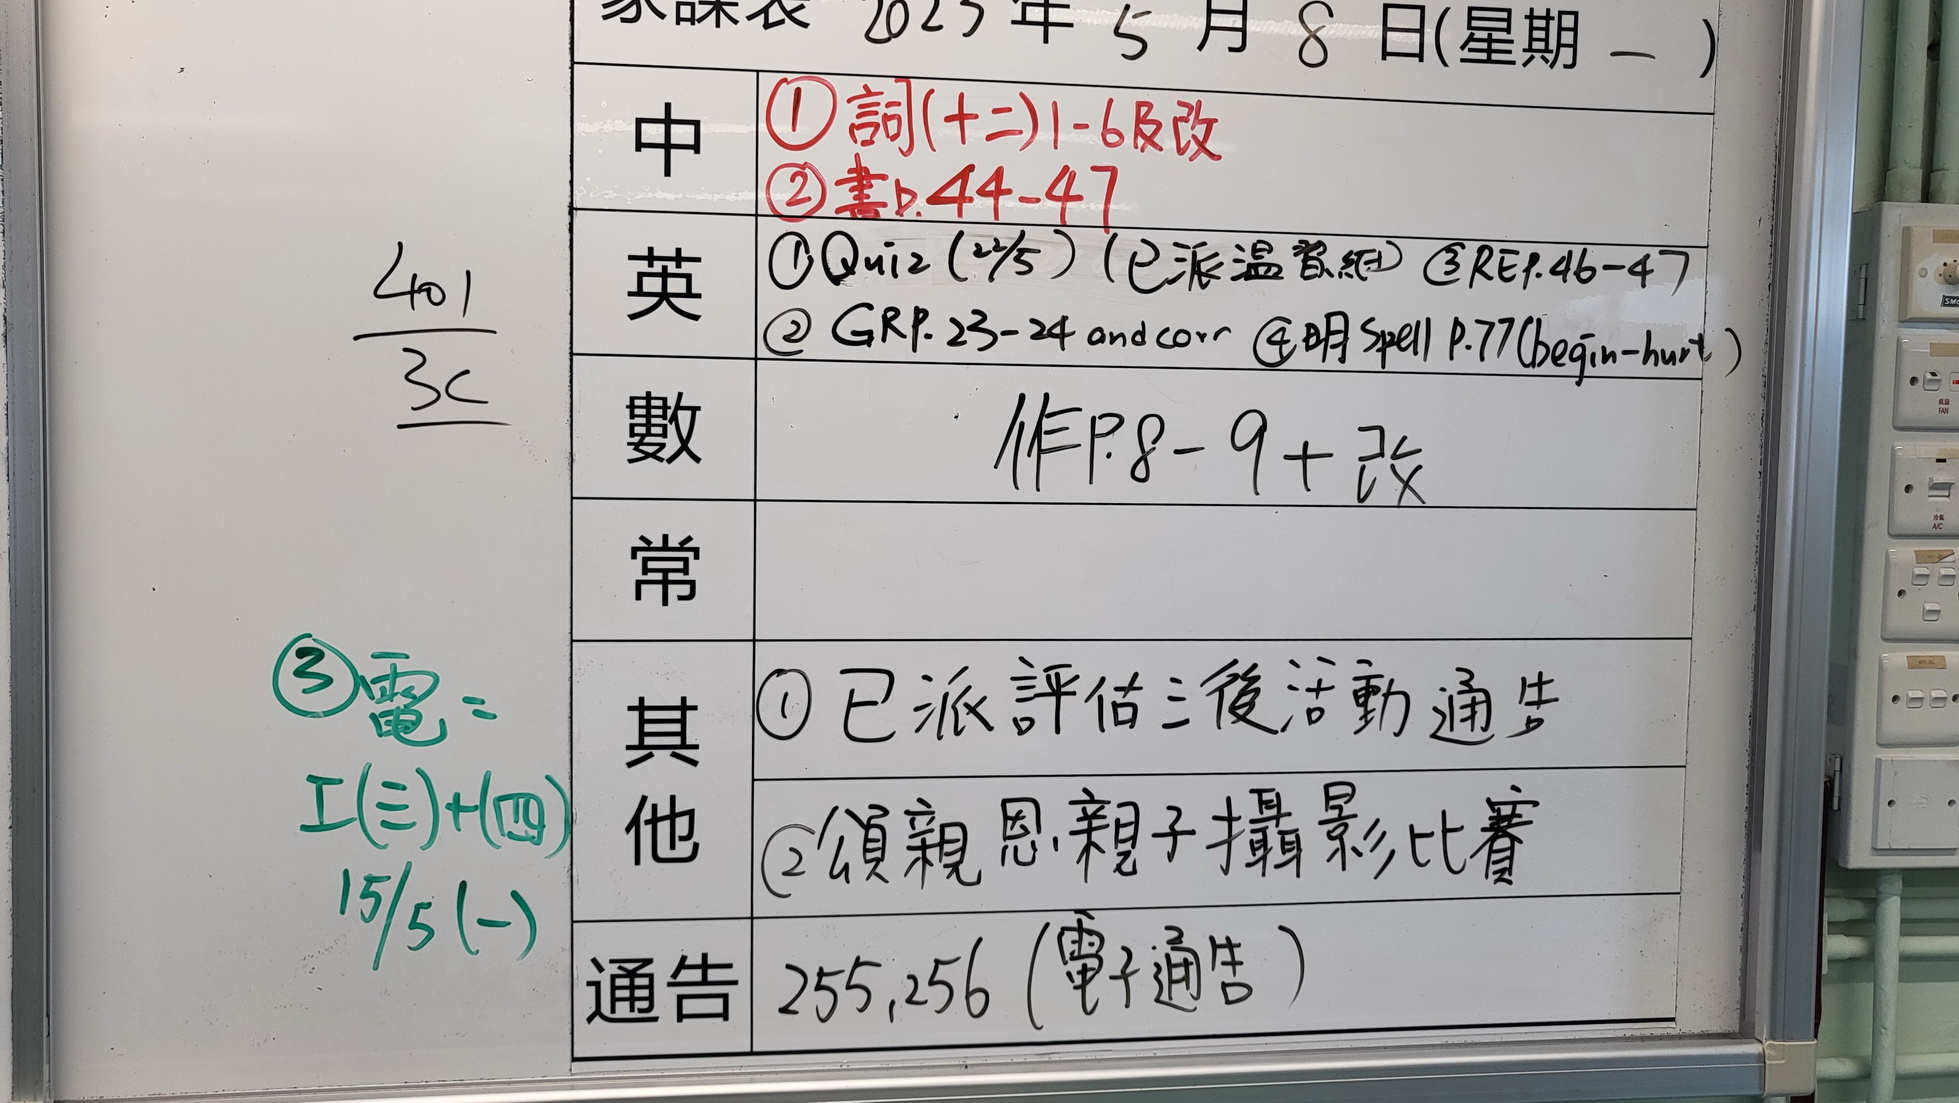 家課表 2023 年 5 月 8 日(星期 一 )
中
① 詞(十二)1-6及改
② 書p.44-47
英
① Quiz (22/5) (已派温習紙) ③ REP.46-47
② GRP.23-24 and corr ④ 明 Spell P.77(begin-hurt)
數
作P.8-9+改
常
其他
① 已派評估三後活動通告
② 頌親恩.親子攝影比賽
通告
255,256 (電子通告)
401
3C
③電=
工(三)+(四)
15/5(一)
FAN
A/C